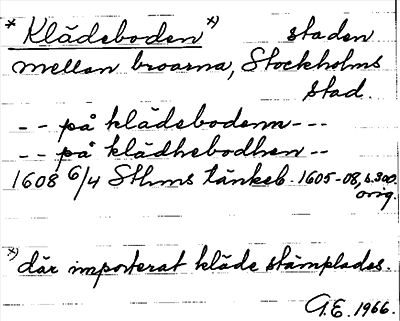 * Klädeboden *) staden
mellan broarna, Stockholms
stad.
- - på klädebodenn - - -
- - på klädhebodhen - -
1608 6/4 Sthms tänkeb. 1605-08, s. 300.
orig.
*) där importerat kläde stämplades.
G.E. 1966.